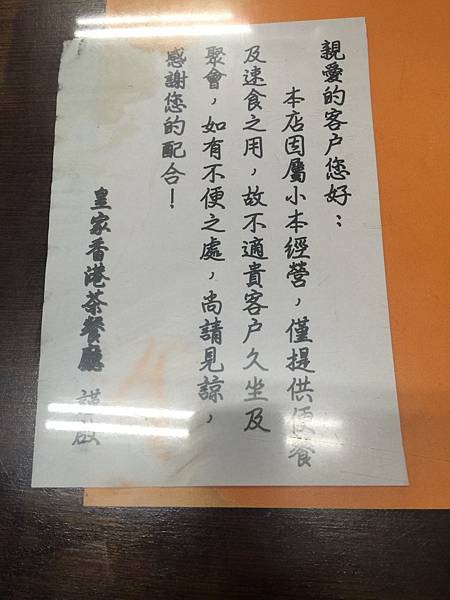 親愛的客戶您好：
本店因屬小本經營，僅提供便餐
及速食之用，故不適貴客戶久坐及
聚會，如有不便之處，尚請見諒，
感謝您的配合！
皇家香港茶餐廳 謹啟